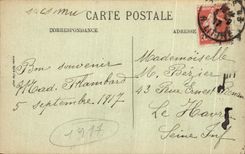 CARTE POSTALE
CORRESPONDANCE
ADRESSE
Bon souvenir
Mad. Flambard
5 septembre 1917
1917
Mademoiselle
M. Bézier
43 Rue Ernest Renan
Le Havre
Seine Inf